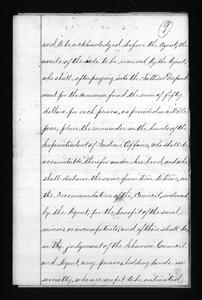 9
and to be acknowledged before the Agent; the
avails of the sale to be received by the Agent,
who shall, after paying into the Depart
ment for the common fund the sum of fifty
dollars for each person, as provided in
place the remainder in the hands of the
Superintendent of Indian Affairs, who shall be
accountable therefor under his bond, and who
shall disburse the same from time to time, on
the recommendation of the Council, endorsed
by the Agent, for the benefit of the said
minors or incompetents; and if there shall be
in the judgement of the Shawnee Council
and Agent, any persons holding lands in
severalty, who are unfit to be entrusted